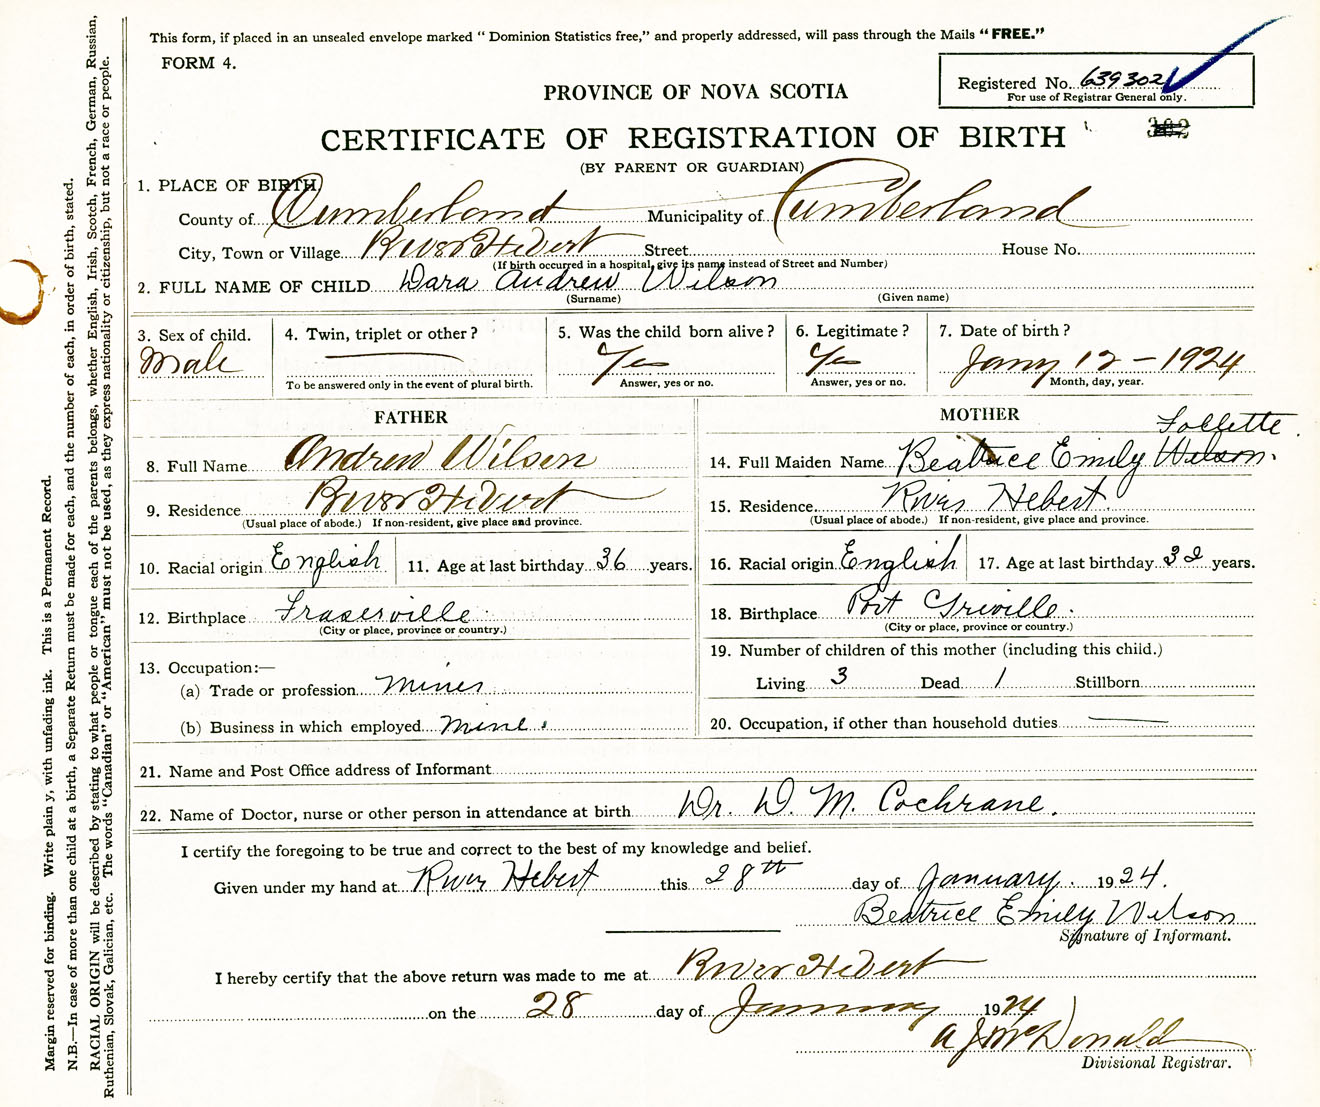 This form, if placed in an unsealed envelope marked “ Dominion Statistics free,” and properly addressed, will pass through the Mails “FREE.”
FORM 4.
Registered No. 639302
For use of Registrar General only.
PROVINCE OF NOVA SCOTIA
CERTIFICATE OF REGISTRATION OF BIRTH
(BY PARENT OR GUARDIAN)
1. PLACE OF BIRTH
County of Cumberland Municipality of Cumberland
City, Town or Village River Hebert Street House No.
(If birth occurred in a hospital, give its name instead of Street and Number)
2. FULL NAME OF CHILD Dara Andrew Wilson
(Surname) (Given name)
3. Sex of child. 4. Twin, triplet or other? 5. Was the child born alive? 6. Legitimate? 7. Date of birth?
Male Yes Yes Jany 12 - 1924
To be answered only in the event of plural birth. Answer, yes or no. Answer, yes or no. Month, day, year.
FATHER
8. Full Name Andrew Wilson
9. Residence River Hebert
(Usual place of abode.) If non-resident, give place and province.
10. Racial origin English 11. Age at last birthday 36 years.
12. Birthplace Fraserville
(City or place, province or country.)
13. Occupation:—
(a) Trade or profession Miner
(b) Business in which employed Mine
MOTHER
Follette
14. Full Maiden Name Beatrice Emily Wilson.
15. Residence River Hebert.
(Usual place of abode.) If non-resident, give place and province.
16. Racial origin English 17. Age at last birthday 32 years.
18. Birthplace Port Griville.
(City or place, province or country.)
19. Number of children of this mother (including this child.)
Living 3 Dead 1 Stillborn
20. Occupation, if other than household duties
21. Name and Post Office address of Informant
22. Name of Doctor, nurse or other person in attendance at birth Dr. D. M. Cochrane.
I certify the foregoing to be true and correct to the best of my knowledge and belief.
Given under my hand at River Hebert this 28th day of January. 1924.
Beatrice Emily Wilson
Signature of Informant.
I hereby certify that the above return was made to me at River Hebert
on the 28 day of January 1924
A J McDonald
Divisional Registrar.
Margin reserved for binding. Write plain y, with unfading ink. This is a Permanent Record.
N.B.—In case of more than one child at a birth, a Separate Return must be made for each, and the number of each, in order of birth, stated.
RACIAL ORIGIN will be described by stating to what people or tongue each of the parents belongs, whether English, Irish, Scotch, French, German, Russian,
Ruthenian, Slovak, Galician, etc. The words “Canadian” or “American” must not be used, as they express nationality or citizenship, but not a race or people.